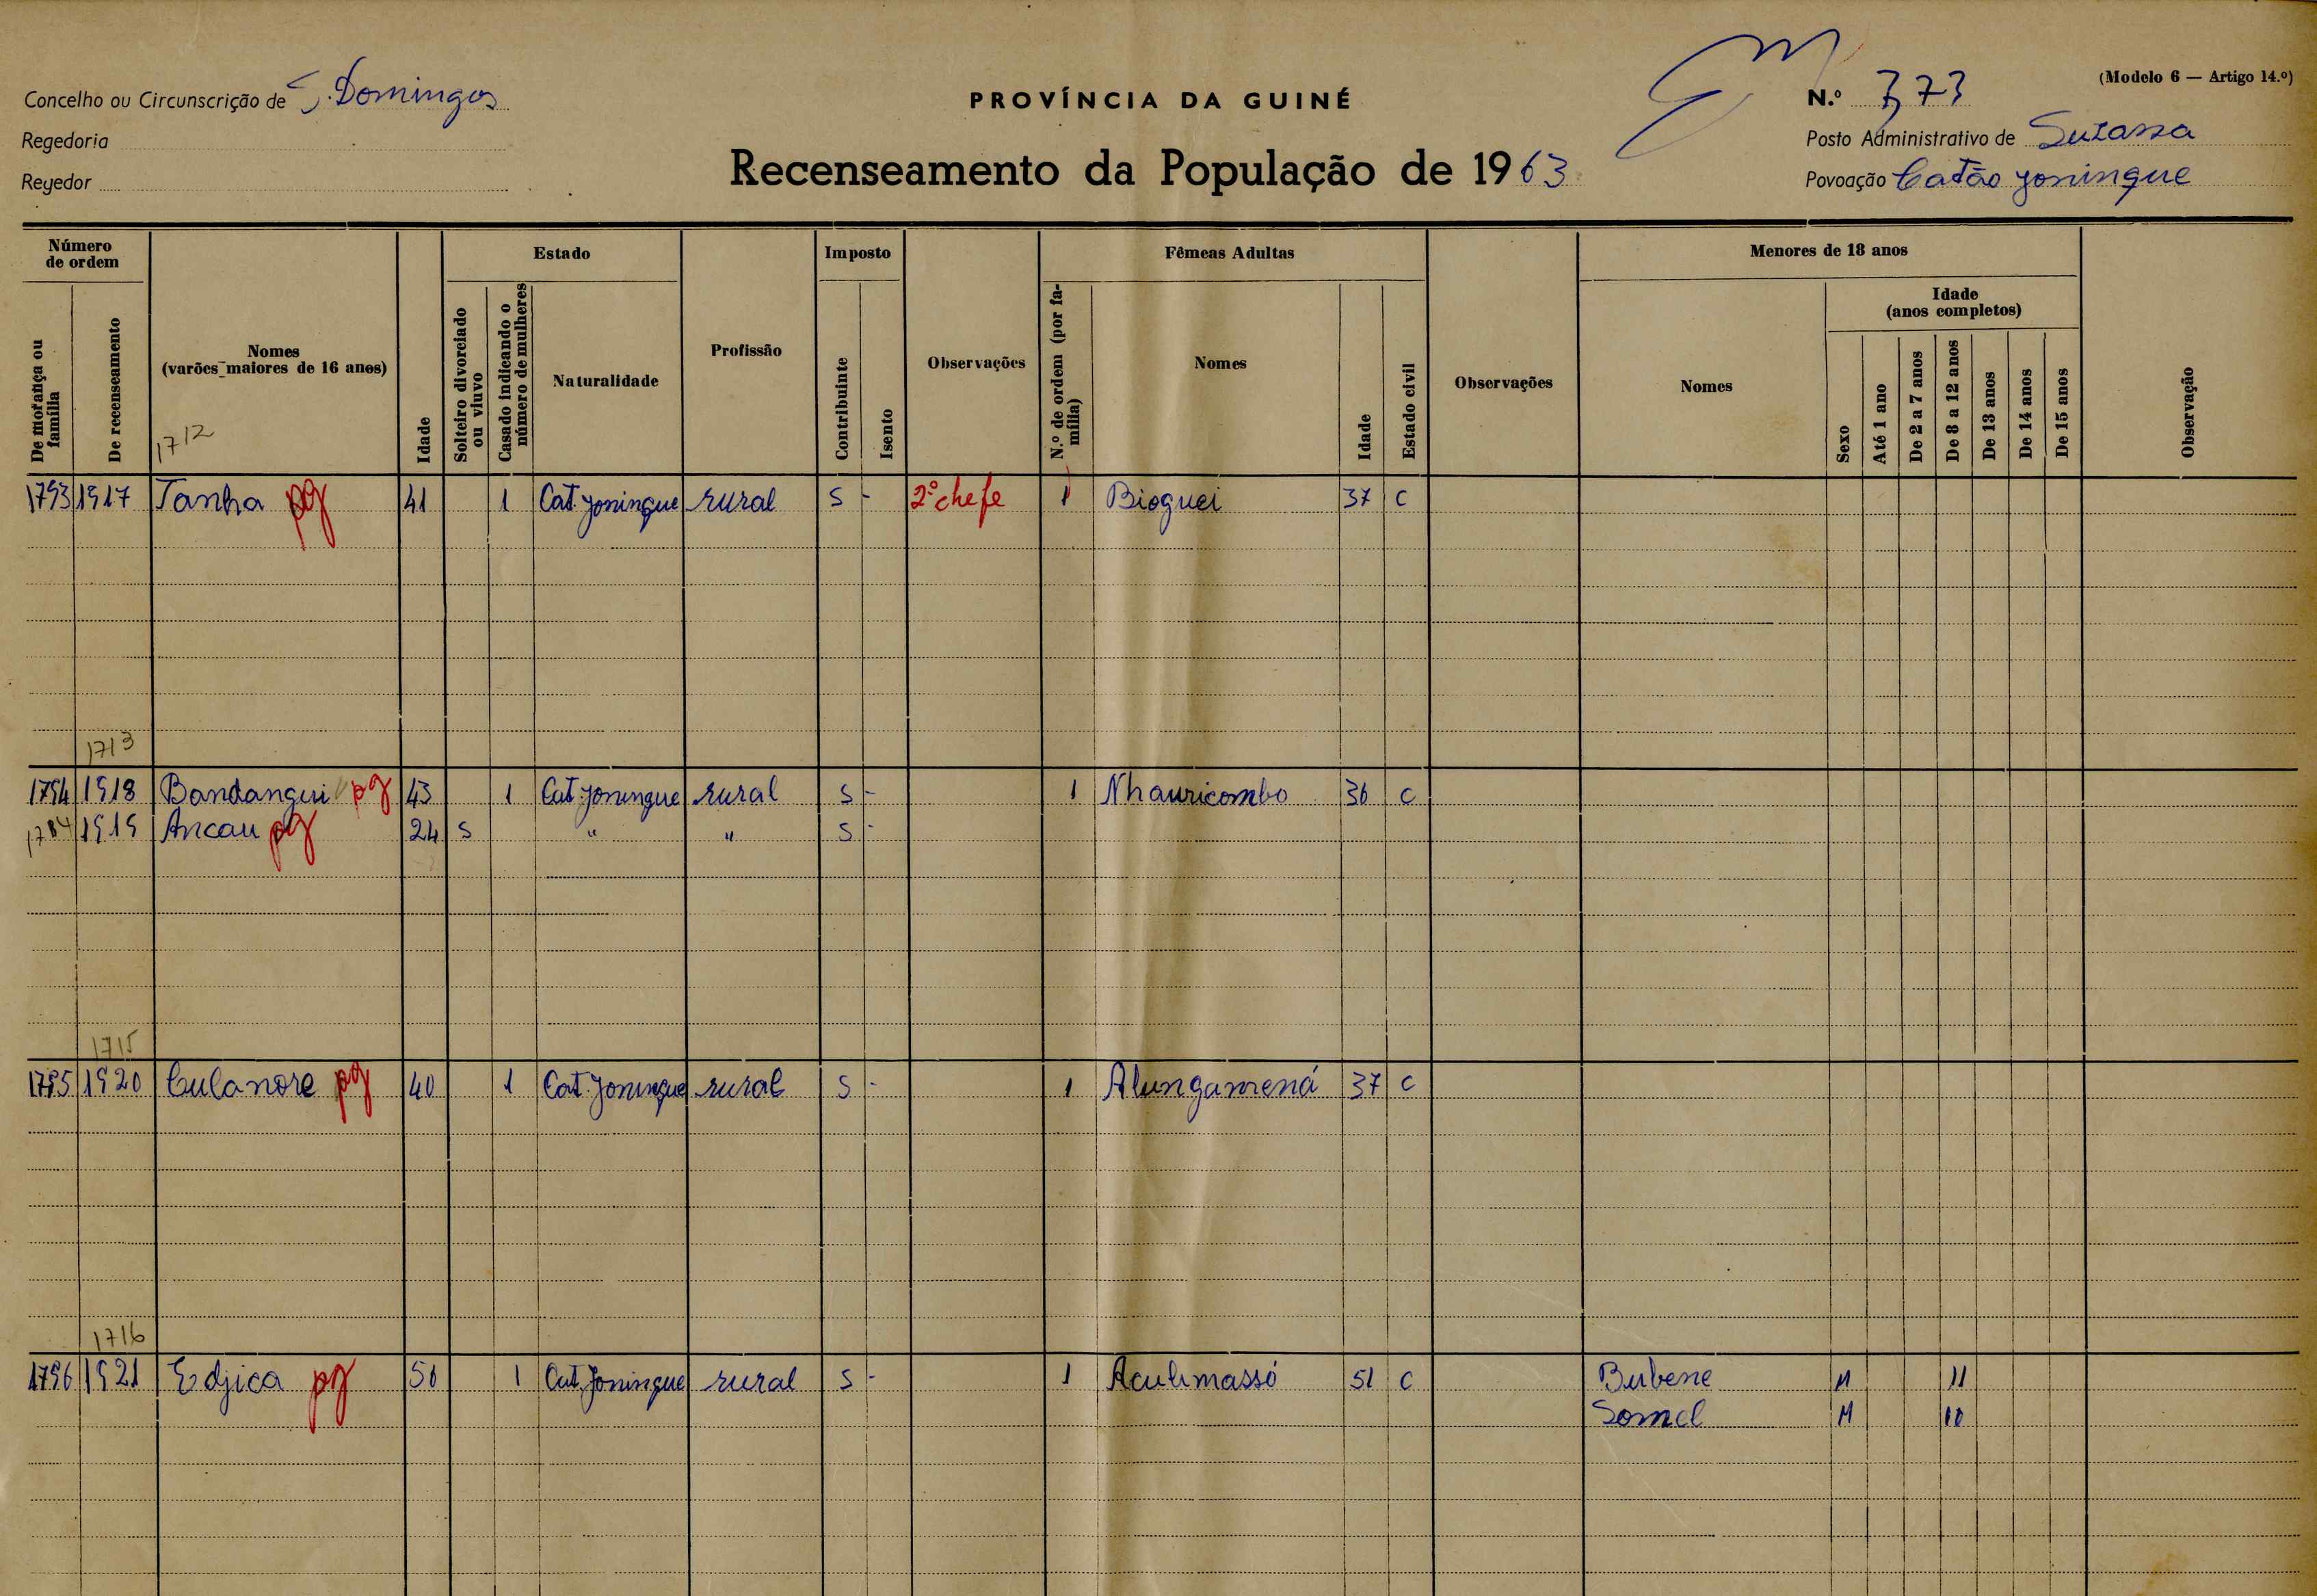 (Modelo 6 — Artigo 14.º)
Concelho ou Circunscrição de S. Domingos
PROVÍNCIA DA GUINÉ
N.º 373
Regedoria
Posto Administrativo de Suzana
Regedor
Recenseamento da População de 1963
Povoação Catão Joningue
Número de ordem
Estado
Imposto
Fêmeas Adultas
Menores de 18 anos
De morança ou família
De recenseamento
Nomes (varões maiores de 16 anos)
1712
Idade
Solteiro divorciado ou viuvo
Casado indicando o número de mulheres
Naturalidade
Profissão
Contribuinte
Isento
Observações
N.º de ordem (por família)
Nomes
Idade
Estado civil
Observações
Nomes
Idade (anos completos)
Sexo
Até 1 ano
De 2 a 7 anos
De 8 a 12 anos
De 13 anos
De 14 anos
De 15 anos
Observação
1793 1917 Tanha pg 41 1 Cat. Joningue rural S - 2º chefe 1 Bioguei 37 C
1713
1794 1918 Bandangui pg 43 1 Cat. Joningue rural S - 1 Nhauricombo 36 C
1919 Ancau pg 24 S " " S -
1715
1795 1920 Culanore pg 40 1 Cat. Joningue rural S - 1 Alungamená 37 C
1716
1796 1921 Edjica pg 1 Cat. Joningue rural S - 1 Aculimassó 51 C Bubene M 11
M 10